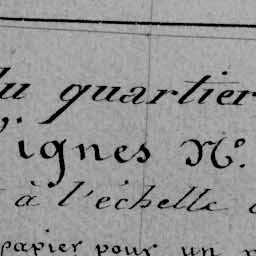 du quartier
Vignes N°.
à l'échelle
papier pour un